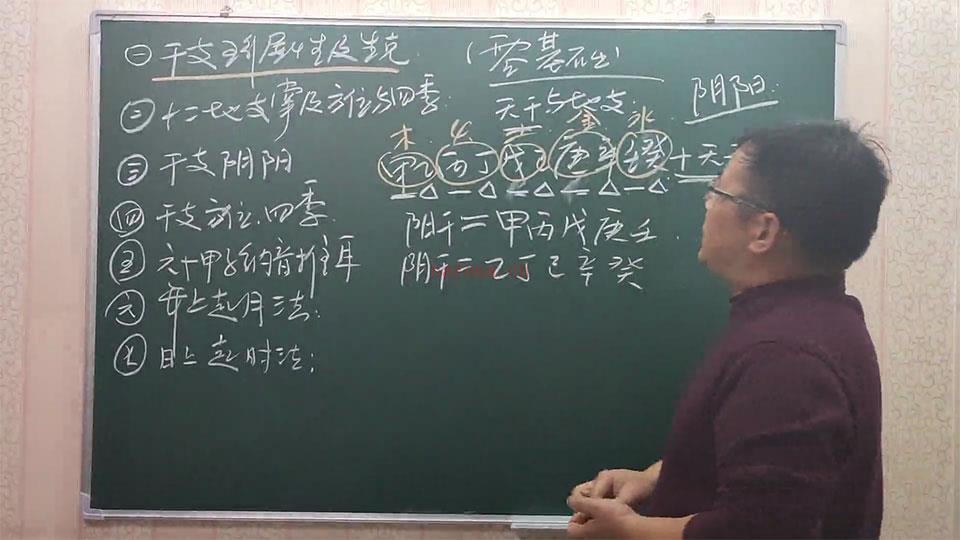 ㊀ 干支五行属性及生克
(零基础)
㊁ 十二地支掌及方位与四季:
天干与地支:
阴阳:
木 火 土 金 水
甲乙 丙丁 戊己 庚辛 壬癸 十天干
㊂ 干支阴阳
㊃ 干支方位、四季.
阳干=甲丙戊庚壬.
㊄ 六十甲子纳音推车
阴干=乙丁己辛癸
㊅ 年上起月法:
㊆ 日上起时法;